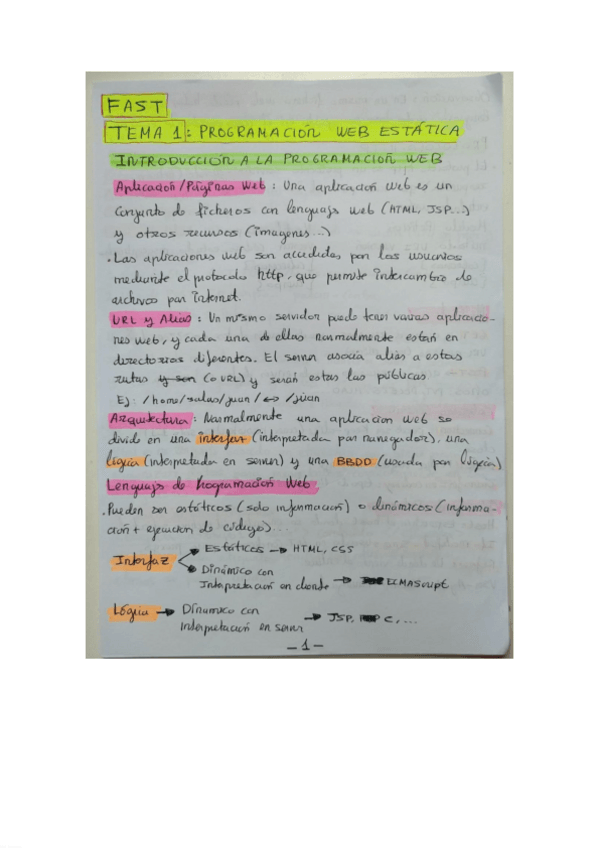 FAST
TEMA 1: PROGRAMACIÓN WEB ESTÁTICA
INTRODUCCION A LA PROGRAMACION WEB
Aplicación/Páginas Web: Una aplicación web es un
conjunto de ficheros con lenguajes web (HTML, JSP...)
y otros recursos (imagenes...)
· Las aplicaciones web son accedidas por los usuarios
mediante el protocolo http, que permite intercambio de
archivos por internet.
URL y Alias: Un mismo servidor puede tener varias aplicacio-
nes web, y cada una de ellas normalmente estan en
directorios diferentes. El server asocia alias a estas
rutas y son (o URL) y serán estas las públicas
Ej: /home/salas/juan/ ↔ /juan
Arquitectura: Normalmente una aplicacion web se
divide en una interfaz (interpretada por navegador), una
lógica (interpretada en server) y una BBDD (usada por lógica)
Lenguajes de Programación Web
· Pueden ser estáticos (solo información) o dinámicos (informa-
ción + ejecucion de código)...
Interfaz
Estáticos → HTML, CSS
Dinámico con
Interpretación en cliente → ECMAScript
Lógica → Dinamico con
interpretación en server → JSP, C, ...
-1-